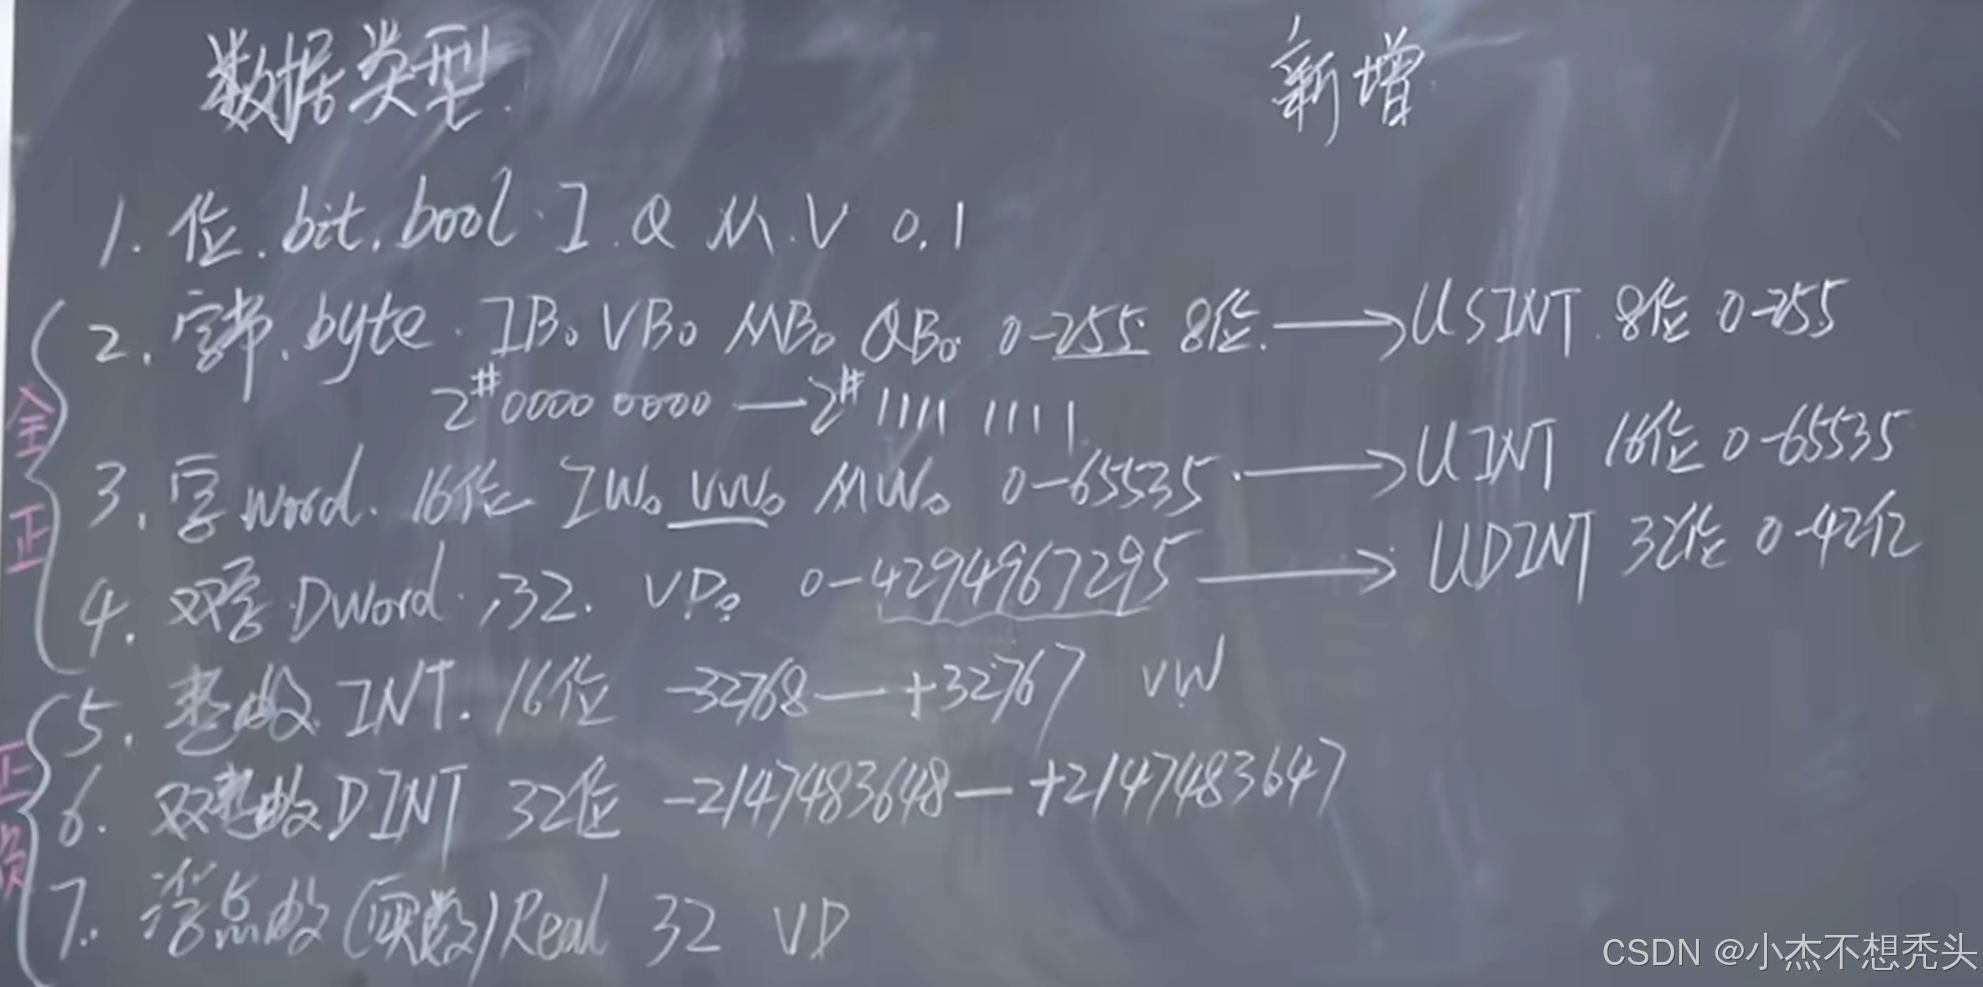 数据类型. 新增
1. 位. bit. bool. I. Q M. V 0.1
2. 字节. byte. IB0 VB0 MB0 QB0 0-255 8位. → USINT. 8位 0-255
2#0000 0000 — 2#1111 1111
3. 字 word. 16位 IW0 VW0 MW0 0-65535 → UINT 16位 0-65535
4. 双字. DWord. ,32. VD0 0-4294967295 → UDINT 32位 0-42亿
5. 整数 INT. 16位 -32768 — +32767 VW
6. 双整数 DINT 32位 -2147483648 — +2147483647
7. 浮点数 (实数) Real 32 VD
全正
正负
CSDN @小杰不想秃头